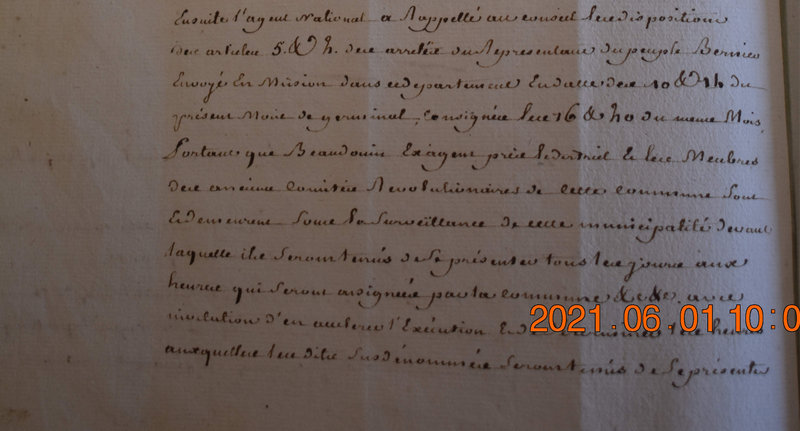 Ensuite l'agent National a Rappellé au conseil les dispositions
des articles 5. & h. des arretés du Representant du peuple Bernier
Envoyé En Mission dans ce departement En datte des 10 & 14 du
présent Mois de germinal, Consignés les 16 & 20 du meme Mois,
Portant que Beaudouin Exagent près le district & les Membres
des anciens Comités Révolutionaires de Cette Commune sont
& demeurent Sous la Surveillance de cette municipalité devant
laquelle ils seront tenus de Se présenter tous les jours aux
heures qui seront assignées par la commune &c &c. avec
invitation d'en accelerer l'Exécution & de les heures
auxquelles les dits Susdénommés seront tenus de Se présenter
2021.06.01 10:0